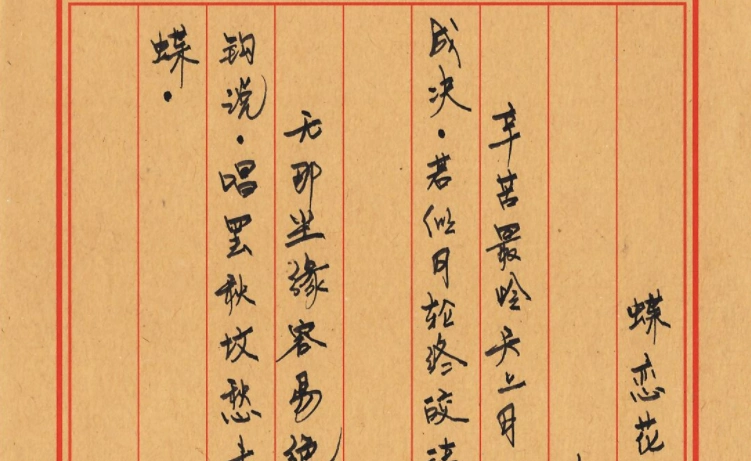 蝶恋花
辛苦最怜天上月
成决·若似月轮终皎
无那尘缘容易绝
钩说·唱罢秋坟愁
蝶·